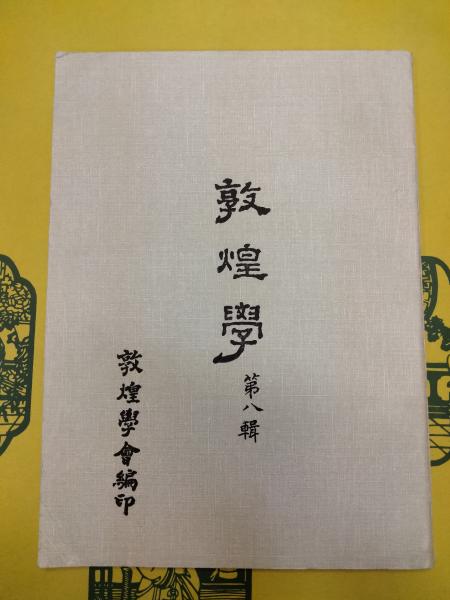 敦煌學
第八輯
敦煌學會編印